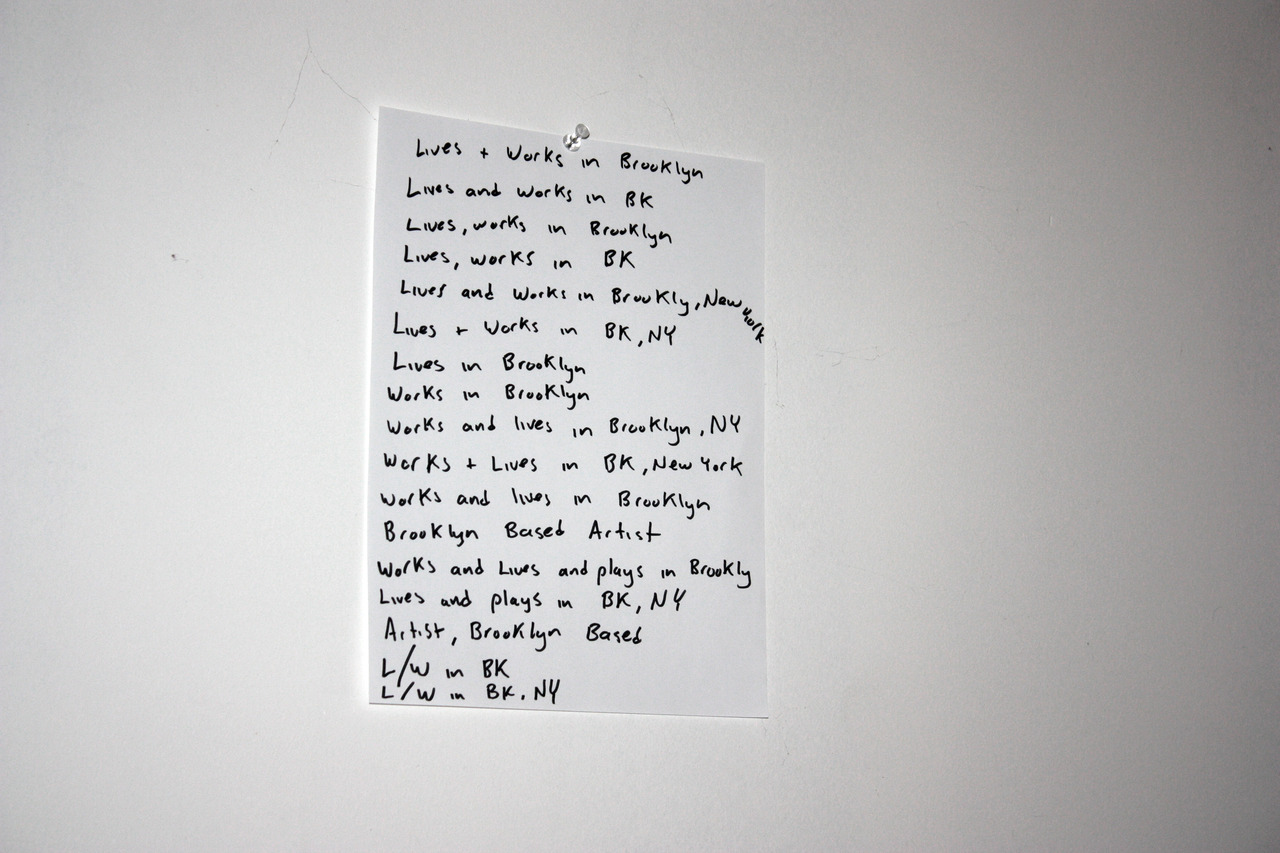 Lives + Works in Brooklyn
Lives and works in BK
Lives, works in Brooklyn
Lives, works in BK
Lives and works in Brookly, New York
Lives + Works in BK, NY
Lives in Brooklyn
Works in Brooklyn
Works and lives in Brooklyn, NY
Works + Lives in BK, New York
works and lives in Brooklyn
Brooklyn Based Artist
Works and Lives and plays in Brookly
Lives and plays in BK, NY
Artist, Brooklyn Based
L/W in BK
L/W in BK, NY